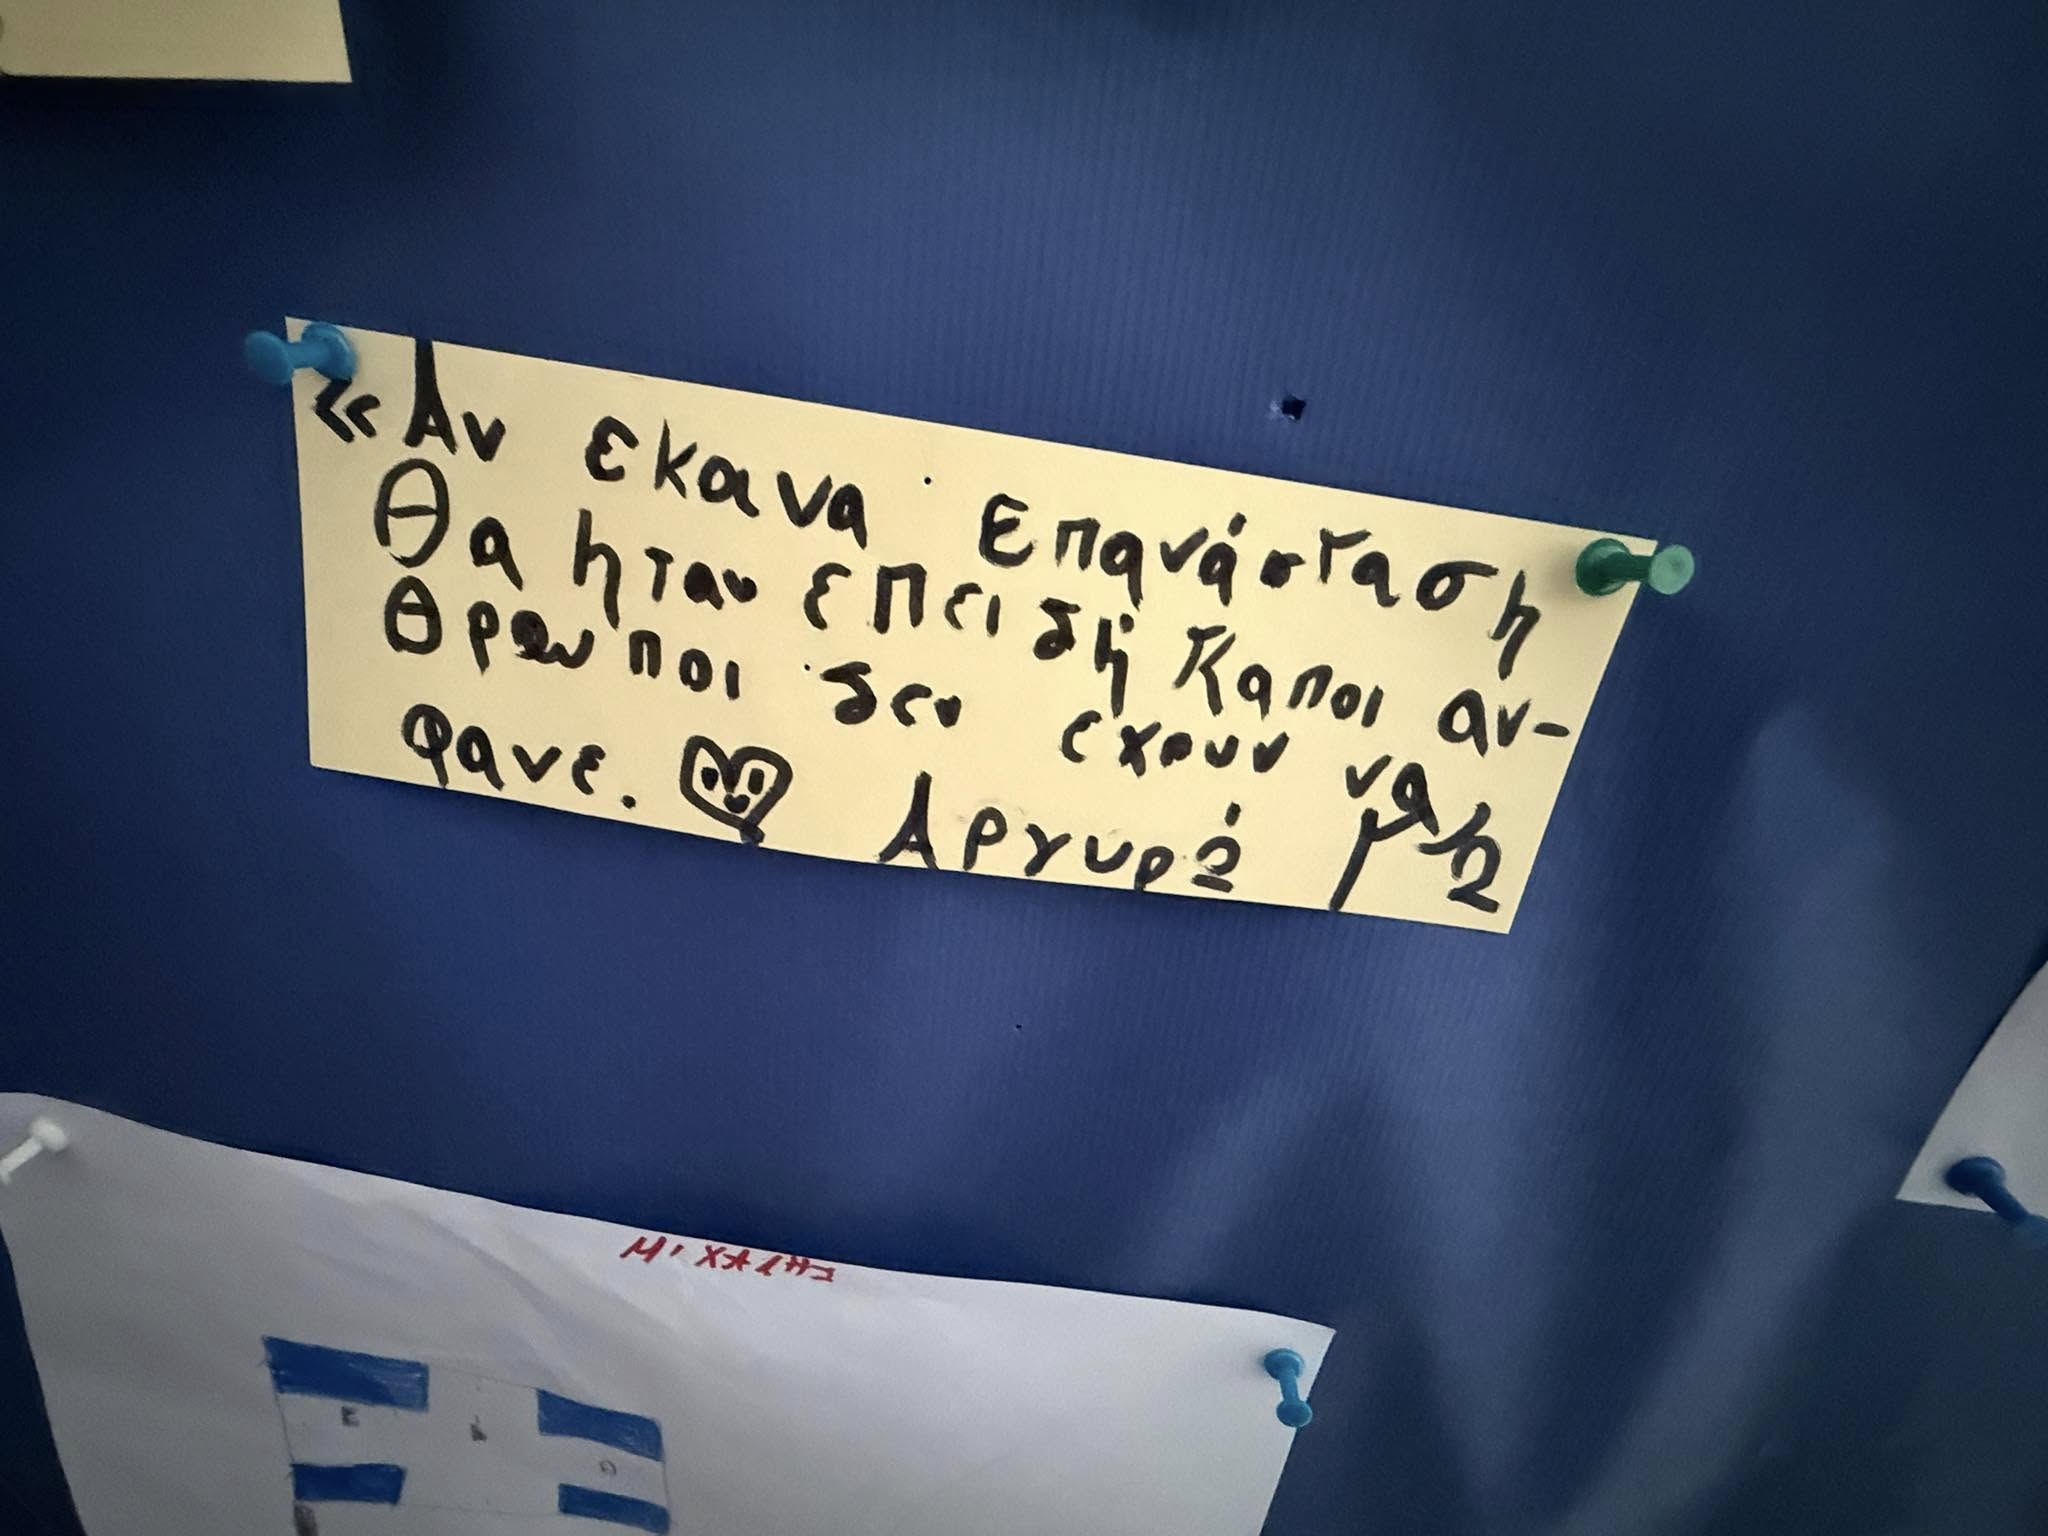 «Αν εκανα Επανάσταση
Θα ηταν επειδή Καποι αν-
θρωποι δεν εχουν να
φανε. Αργυρώ
ΜΙΧΑΛΗΣ